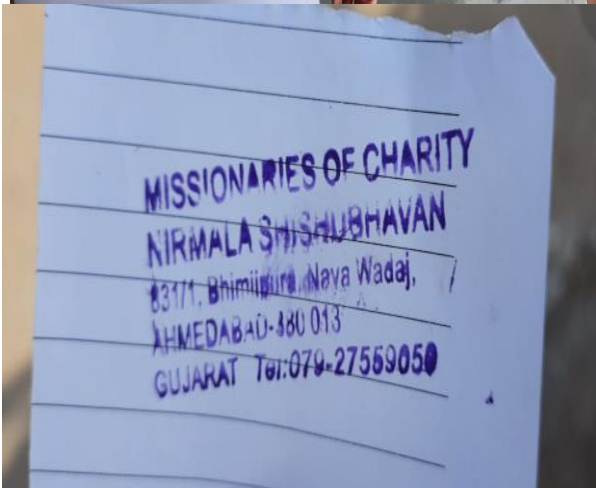 MISSIONARIES OF CHARITY
NIRMALA SHISHUBHAVAN
831/1, Bhimjipura, Nava Wadaj,
AHMEDABAD-380 013
GUJARAT Tel:079-27559050